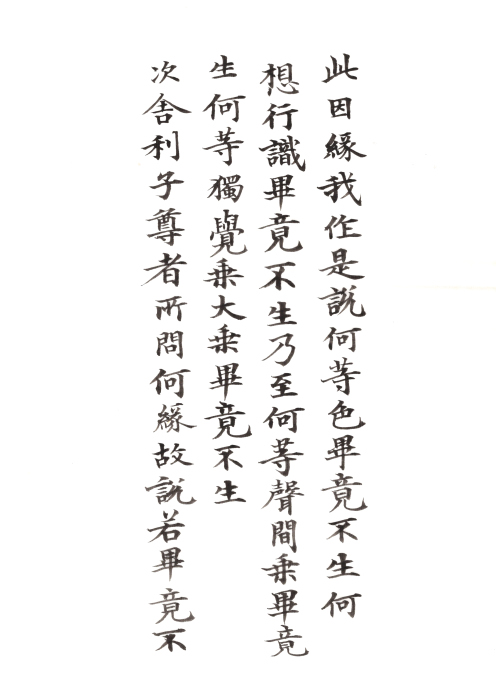 此因緣我作是說何等色畢竟不生何
想行識畢竟不生乃至何等聲間乘畢竟
生何等獨覺乘大乘畢竟不生
次舍利子尊者所問何緣故說若畢竟不